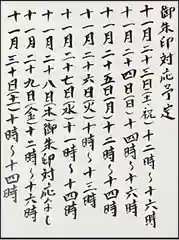 御朱印対応予定
十一月二十三日(土・祝)十二時〜十六時
十一月二十四日(日)十四時〜十六時
十一月二十五日(月)十二時〜十四時
十一月二十六日(火)十時〜十三時
十一月二十七日(水)十一時〜十四時
十一月二十八日(木)御朱印対応なし
十一月二十九日(金)十二時〜十六時
十一月三十日(土)十時〜十四時